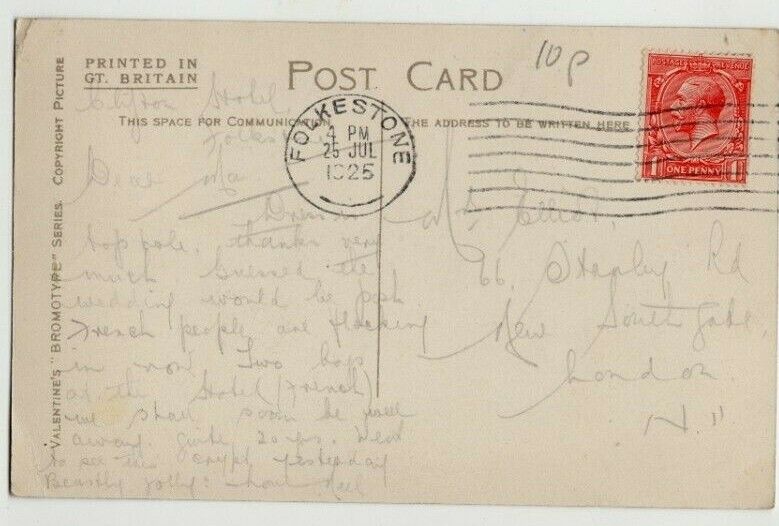 PRINTED IN
GT. BRITAIN
POST CARD
10p
POSTAGE REVENUE
ONE PENNY
THIS SPACE FOR COMMUNICATION
THE ADDRESS TO BE WRITTEN HERE
FOLKESTONE
4 PM
25 JUL
1925
VALENTINE'S "BROMOTYPE" SERIES. COPYRIGHT PICTURE
Clifton Hotel
Folkestone
Dear Ma
top pole. thanks very
much
wedding would be posh
French people are flocking
in now. Two
at the Hotel (French)
we shall soon be
away.
to see the crypt yesterday
Beastly jolly:
66, Stapley Rd
New Southgate,
London.
N. 11